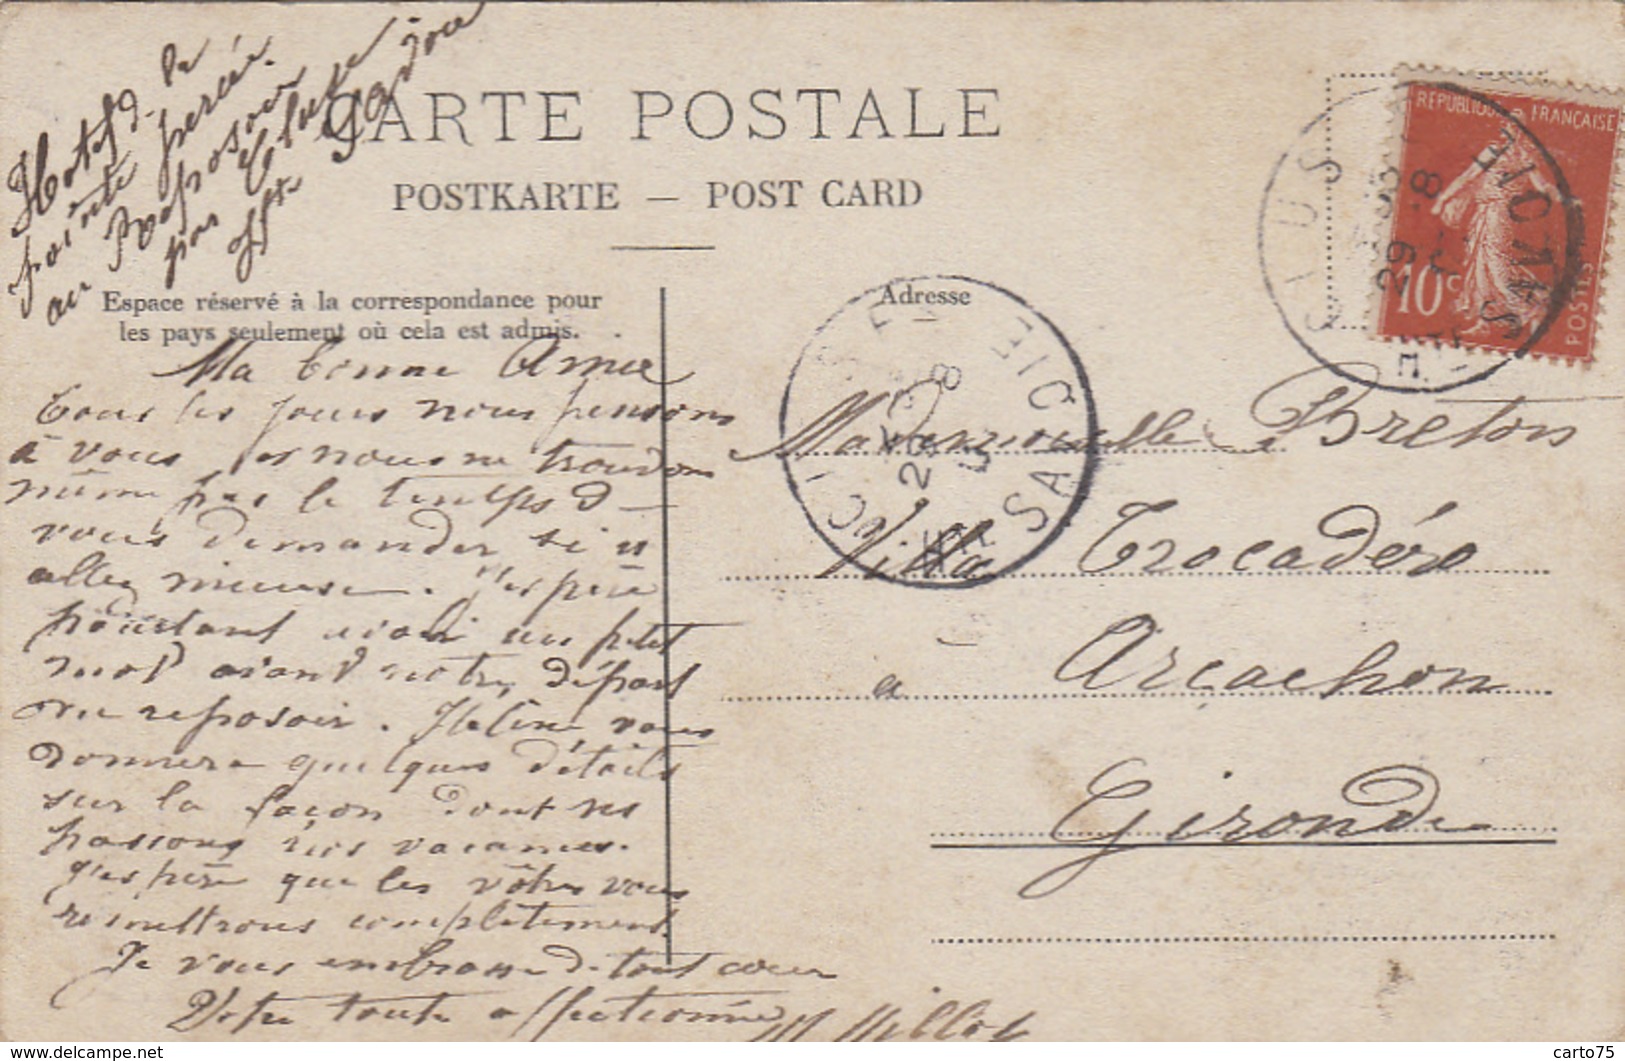 Hotel de la
pointe percée
au Reposoir
par Cluse
Hte Savoie
CARTE POSTALE
POSTKARTE — POST CARD
Espace réservé à la correspondance pour
les pays seulement où cela est admis.
Adresse
REPUBLIQUE FRANÇAISE
10c
POSTES
29 -8
CLUSES
HTE SAVOIE
29 -8
Ma bonne Amie
Tous les jours nous pensons
à vous et nous ne trouvons
même pas le temps d
vous demander si v
allez mieux. J'espère
pourtant avoir un petit
mot avant notre départ
du reposoir. Hélène vous
donnera quelques détails
sur la façon dont
passons nos vacances.
J'espère que les vôtres vous
remettrons complètement.
Je vous embrasse de tout cœur
Votre toute affectionnée M Millot
Mademoiselle Breton
Villa Trocadéro
à Arcachon
Gironde
carto75